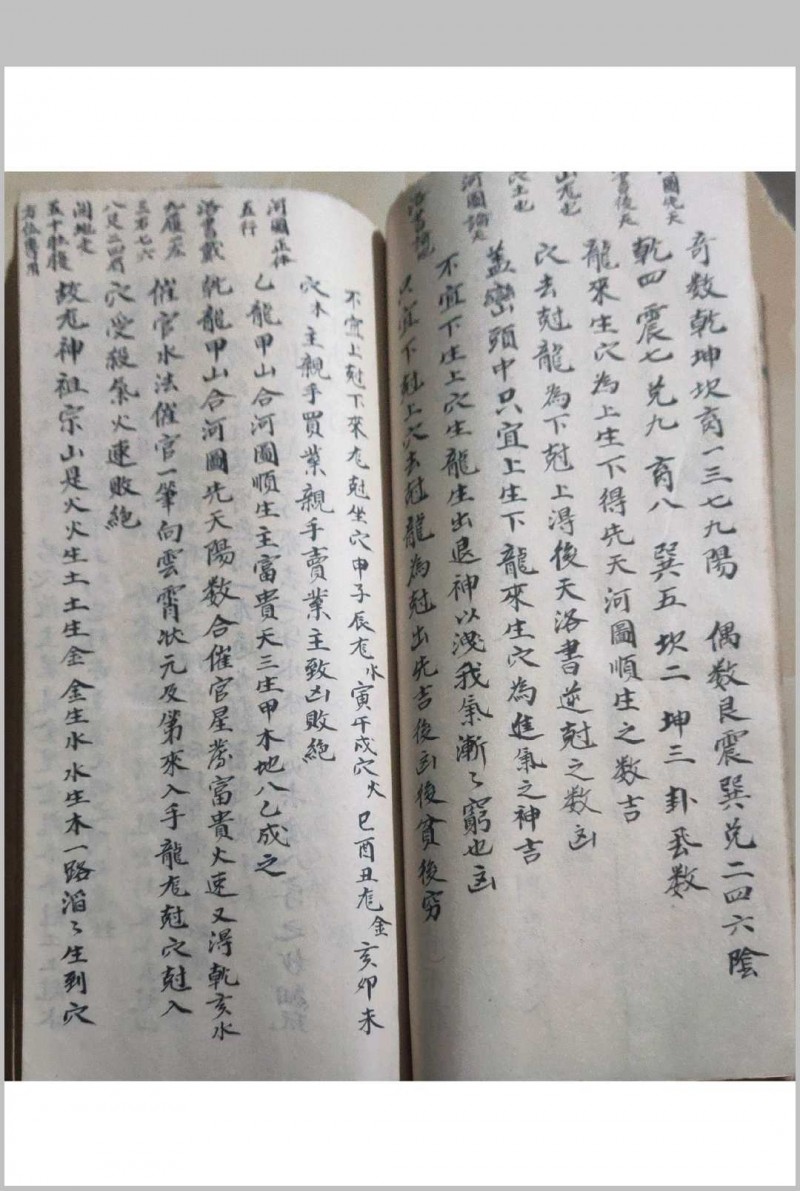 圖先天
書後天
山尨也
穴土也
河圖論
奇数乾坤坎离一三七九陽　偶数艮震巽兑二四六陰
乾四　震七兑九　离八　巽五　坎二　坤三　卦数
龍來生穴為上生下得先天河圖順生之数吉
穴去尅龍為下尅上得後天洛書逆尅之数凶
蓋巒頭中只宜上生下龍來生穴為進氣之神吉
不宜下生上穴生龍生出退神以洩我氣漸々窮也凶
只宜下尅上穴去尅龍為尅出先吉後凶後貧後穷
河圖正体
五行
洛書戴
九履一左
三右七六
八足二四肩
方位專用
不宜上尅下來尨尅坐穴申子辰尨水寅午戍穴火　巳酉丑尨金亥卯未
穴木主親手買業親手賣業主致凶敗絶
乙龍甲山合河圖順生主富貴天三生甲木地八乙成之
乾龍甲山合河圖先天陽数合催官星發富貴火速又得乾亥水
催官水法催官一筆向雲霄狀元及第來入手龍尨尅穴尅入
穴受殺氣火速敗絶
故尨神祖宗山是火火生土土生金金生水水生木一路滔々生到穴